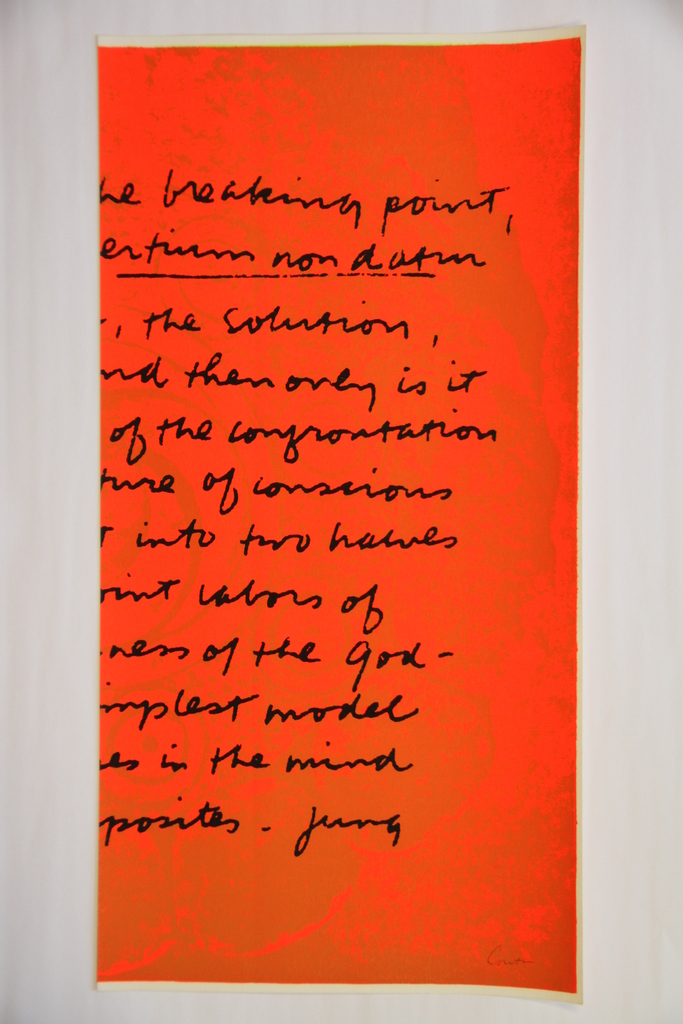 he breaking point,
ertium non datur
, the solution,
nd then only is it
of the confrontation
ture of conscious
t into two halves
oint labors of
ness of the God-
implest model
es in the mind
pposites. Jung
Corita